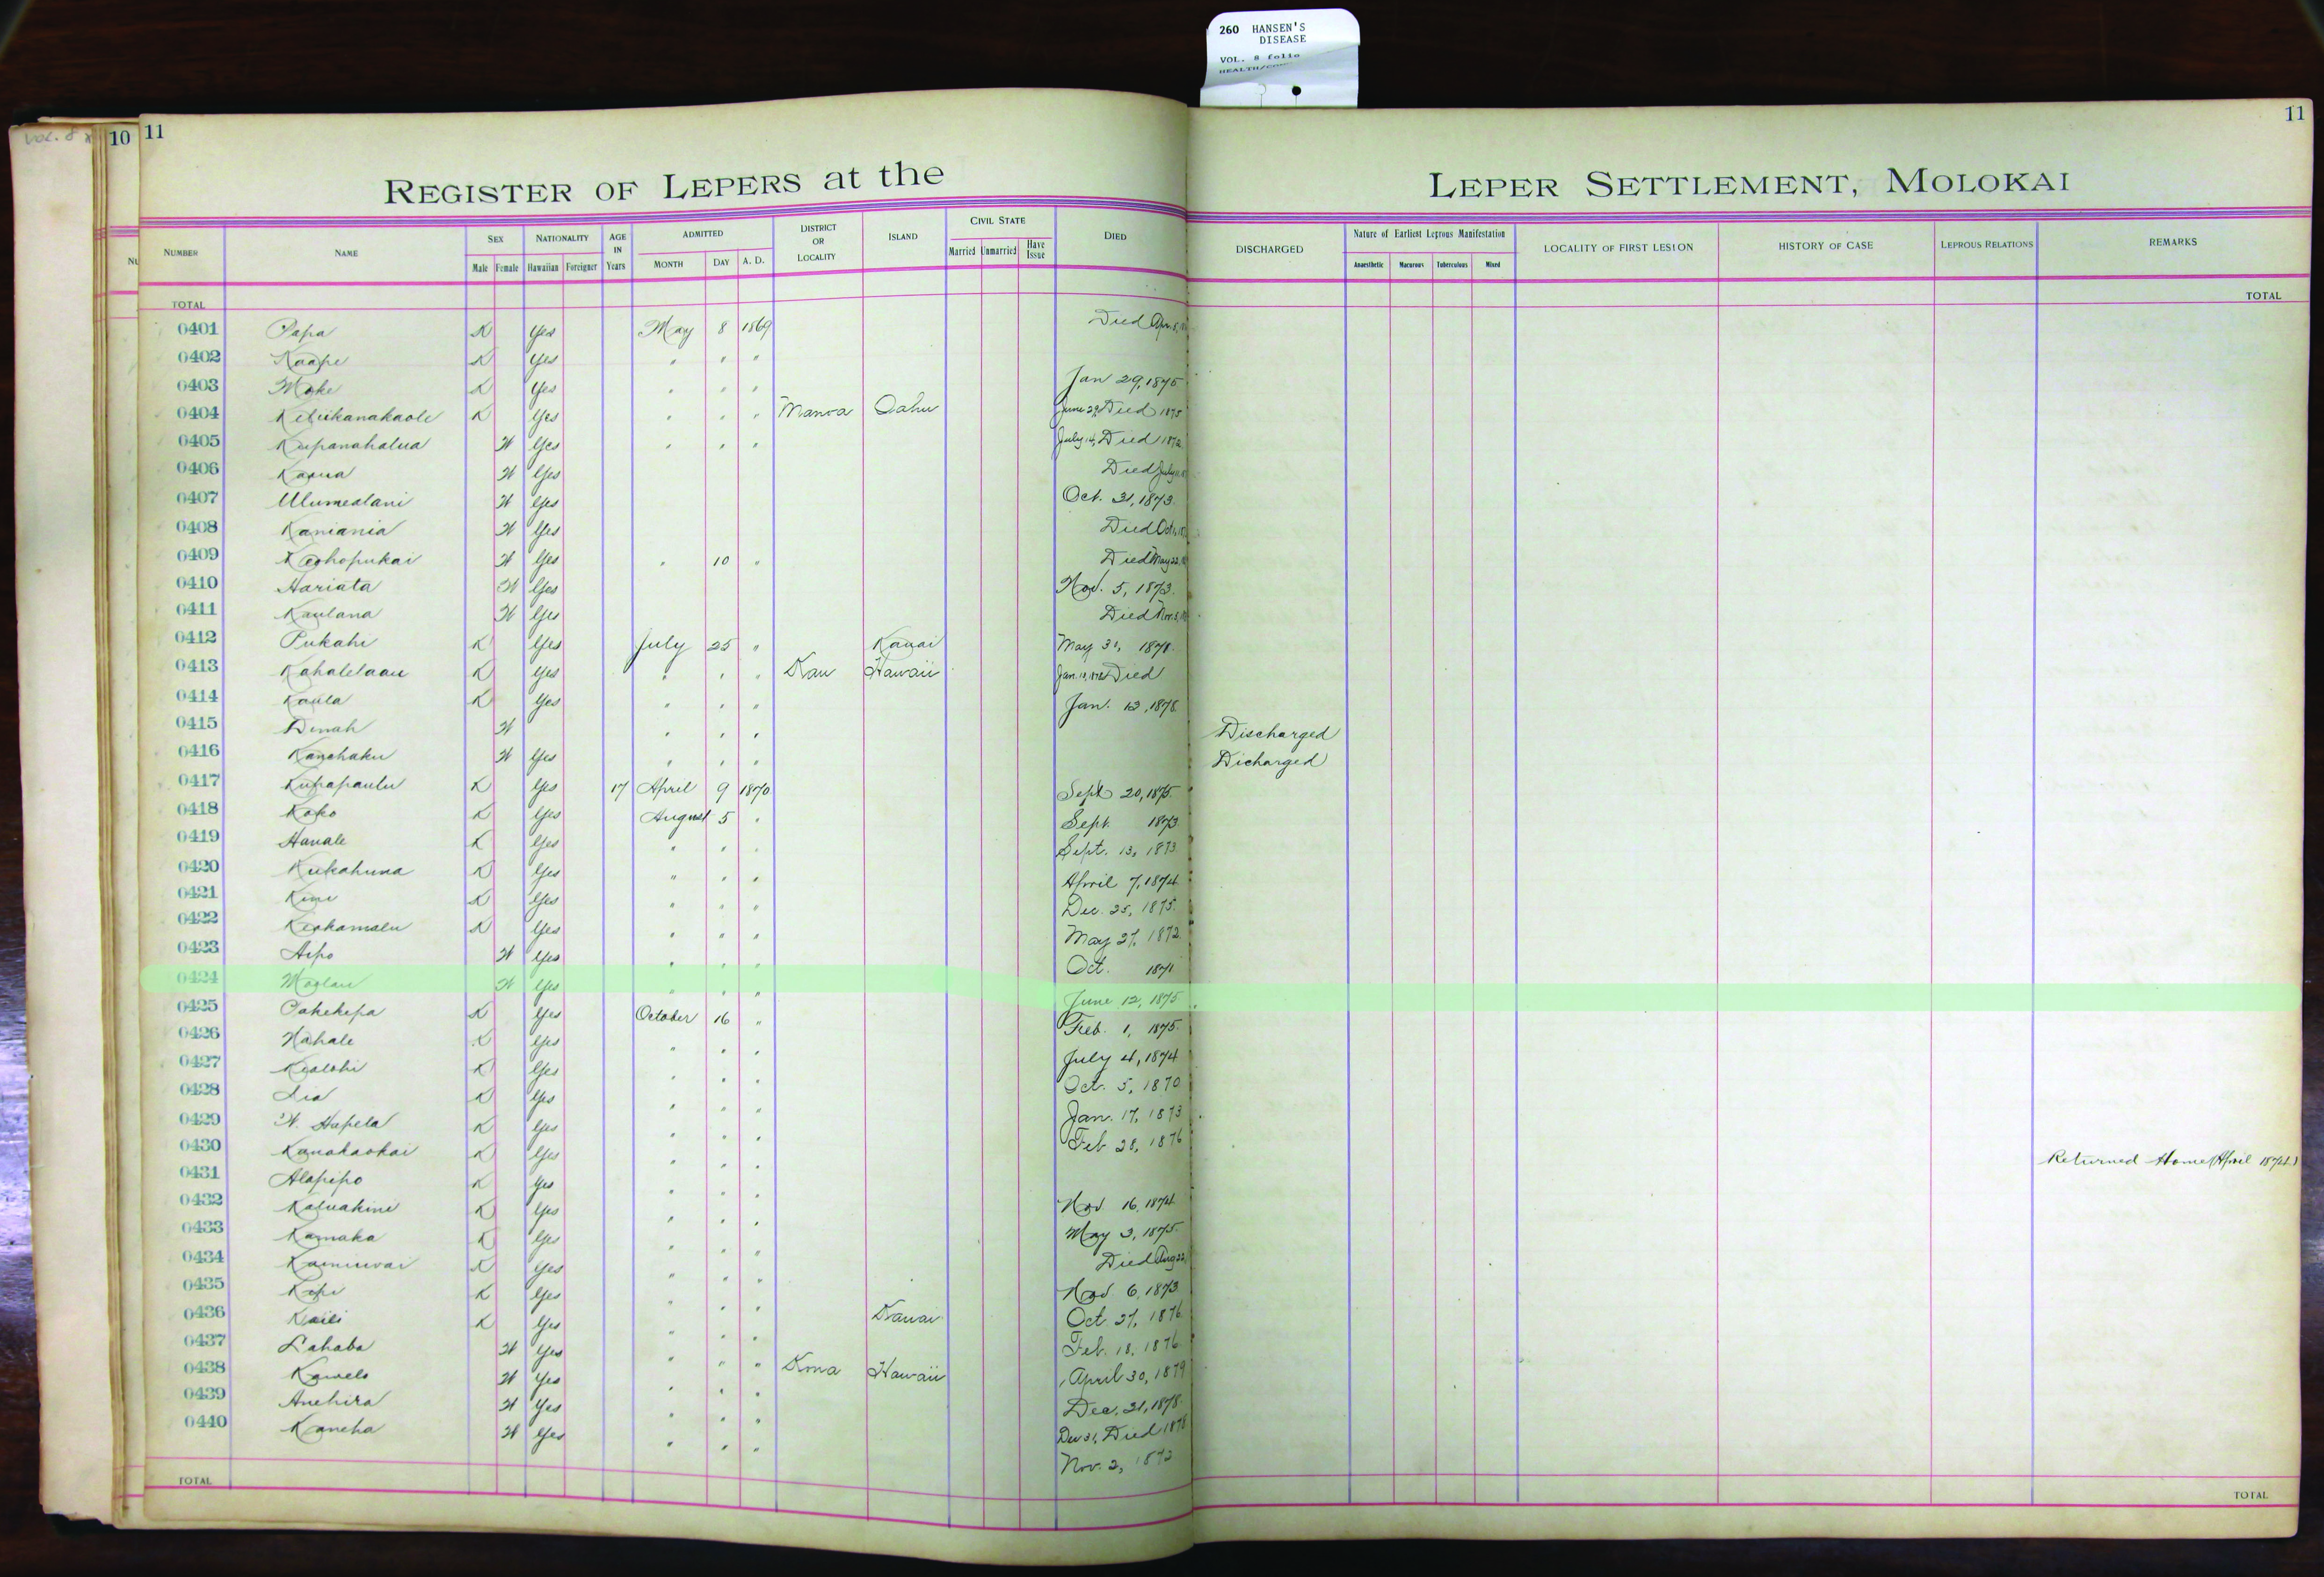 260 HANSEN'S
DISEASE
VOL. 8 folio
VOL. 8
10
11
11
REGISTER OF LEPERS at the LEPER SETTLEMENT, MOLOKAI
NUMBER NAME SEX NATIONALITY AGE IN Years ADMITTED DISTRICT OR LOCALITY ISLAND CIVIL STATE DIED DISCHARGED Nature of Earliest Leprous Manifestation LOCALITY OF FIRST LESION HISTORY OF CASE LEPROUS RELATIONS REMARKS
Male Female Hawaiian Foreigner MONTH DAY A. D. Married Unmarried Have Issue Anaesthetic Macurous Tuberculous Mixed
TOTAL TOTAL
0401 Papa K Yes May 8 1869 Died Apr. 8,
0402 Kaape K Yes " " "
0403 Moke K Yes " " " Jan 29, 1875
0404 Keliikanakaole K Yes " " " Manoa Oahu June 29, Died 1875
0405 Kupanahalua W Yes " " " July 14, Died 1872
0406 Kaaua W Yes Died July
0407 Ulumealani W Yes Oct. 31, 1873.
0408 Kaniania W Yes Died Oct
0409 Keohopukai W Yes " 10 " Died May 22,
0410 Hariata W Yes Nov. 5, 1873.
0411 Kaulana W Yes Died Nov. 3,
0412 Pukahi K Yes July 25 " Kauai May 31, 1878.
0413 Kahalelaau K Yes " " " Kau Hawaii Jan. Died
0414 Kaula K Yes " " " Jan. 12, 1878.
0415 Dinah W " " " Discharged
0416 Kanehaku W Yes " " " Dicharged
0417 Kupapaulu K Yes 17 April 9 1870 Sept 20, 1875.
0418 Koko K Yes August 5 " Sept. 1873
0419 Hanale K Yes " " " Sept. 13, 1873
0420 Kukahuna K Yes " " " April 7, 1874
0421 Kini K Yes " " " Dec. 25, 1875.
0422 Keohamalu K Yes " " " May 27, 1872
0423 Aipo W Yes " " " Oct. 1871
0424 Moolau W Yes " " " June 12, 1875
0425 Oakekepa K Yes October 16 " Feb. 1, 1875.
0426 Nahale K Yes " " " July 4, 1874
0427 Kealohi K Yes " " " Oct. 5, 1870
0428 Lia K Yes " " " Jan. 17, 1873
0429 W. Hapela K Yes " " " Feb 28, 1876
0430 Kanakaokai K Yes " " " Returned Home (April 1874.)
0431 Alapipo K Yes " " " Nov 16, 1874
0432 Kaluakini K Yes " " " May 3, 1875.
0433 Kamaka K Yes " " " Died Aug 22,
0434 Kaminwai K Yes " " " Nov 6, 1873
0435 Kepi K Yes " " " Oct 27, 1876
0436 Kaili K Yes " " " Kauai Feb. 18, 1876
0437 Lahaba W Yes " " " April 30, 1879
0438 Kawelo W Yes " " " Kona Hawaii Dec. 31, 1878.
0439 Anehira W Yes " " " Dec 31, Died 1878
0440 Kaneha W Yes " " " Nov. 2, 1872
TOTAL TOTAL